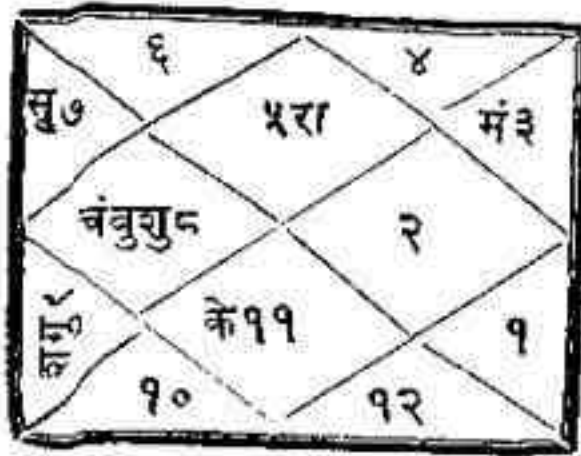 ६ ४
सू७ ५रा मं३
चंबुशु८ २
शगु९ के११ १
१० १२